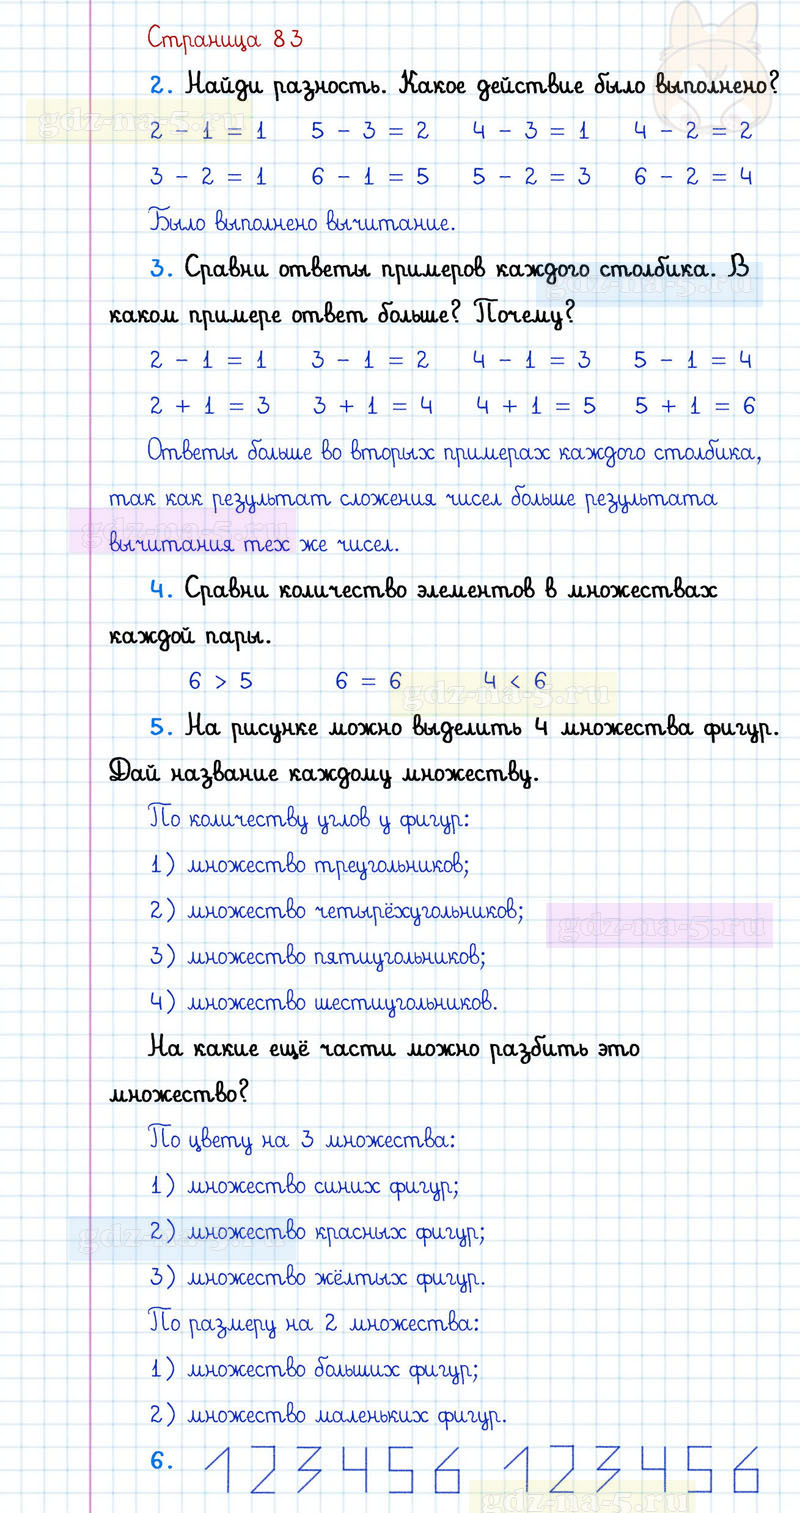 Страница 83
2. Найди разность. Какое действие было выполнено?
gdz-na-5.ru
2 - 1 = 1 5 - 3 = 2 4 - 3 = 1 4 - 2 = 2
3 - 2 = 1 6 - 1 = 5 5 - 2 = 3 6 - 2 = 4
Было выполнено вычитание.
3. Сравни ответы примеров каждого столбика. В
gdz-na-5.ru
каком примере ответ больше? Почему?
2 - 1 = 1 3 - 1 = 2 4 - 1 = 3 5 - 1 = 4
2 + 1 = 3 3 + 1 = 4 4 + 1 = 5 5 + 1 = 6
Ответы больше во вторых примерах каждого столбика,
так как результат сложения чисел больше результата
gdz-na-5.ru
вычитания тех же чисел.
4. Сравни количество элементов в множествах
каждой пары.
6 > 5 6 = 6 4 < 6
gdz-na-5.ru
5. На рисунке можно выделить 4 множества фигур.
Дай название каждому множеству.
По количеству углов у фигур:
1) множество треугольников;
2) множество четырёхугольников;
gdz-na-5.ru
3) множество пятиугольников;
4) множество шестиугольников.
На какие ещё части можно разбить это
множество?
По цвету на 3 множества:
1) множество синих фигур;
2) множество красных фигур;
gdz-na-5.ru
3) множество жёлтых фигур.
По размеру на 2 множества:
1) множество больших фигур;
2) множество маленьких фигур.
6. 1 2 3 4 5 6 1 2 3 4 5 6
gdz-na-5.ru